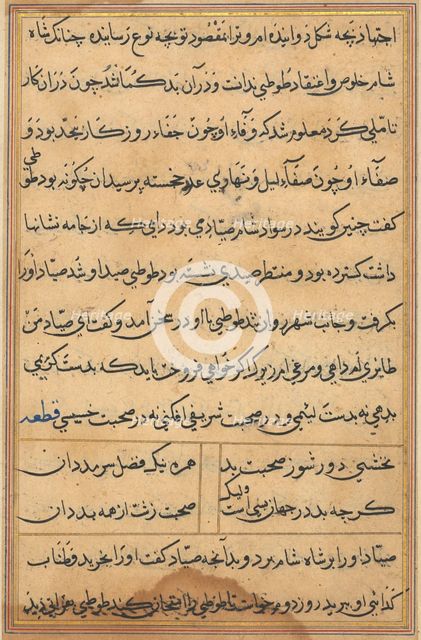 اجتهاد بچه شکل دوانیده ام و ترا بمقصود تو بچه نوع رسانیده چنانک شاه
شام خلوص و اعتقاد طوطی بدانت و در آن بد کمانشد چون در ان کار
تاملی کرد معلوم شد که وفاء او چون جفاء روزکار بیحد بود و
صفاء او چون صفاء لیل و نهار بی عدد خجسته پرسید ان چکونه بود طوطی
کفت چنین کویند در سواد شام صیادی بود روزی که از جامه نشانها
داشت کسترده بود و منتظر صیدی نشسته بود طوطی صید او شد صیاد اورا
بکرفت و جانب شهر روان شد طوطی با او در سخن آمد و کفت ای صیاد من
طایری ام داهی و مرغی ام زیرک اکر خواهی فروخت باید که بدست کریمی
بدهی نه بدست لئیمی و در صحبت شریفی افکنی نه در صحبت خسیسی قطعه
نخشبی دور شو ز صحبت بد همره نیک فضل سرمد دان
کرچه بد در جهان بسی است ولیک صحبت زشت از همه بد دان
صیاد اورا بر شاه شام برد و بدانچه صیاد کفت اورا بخرید و طناب
کدائی او ببرید روز دوم خواست تا طوطی را امتحان کند طوطی
Heritage
Heritage
Heritage